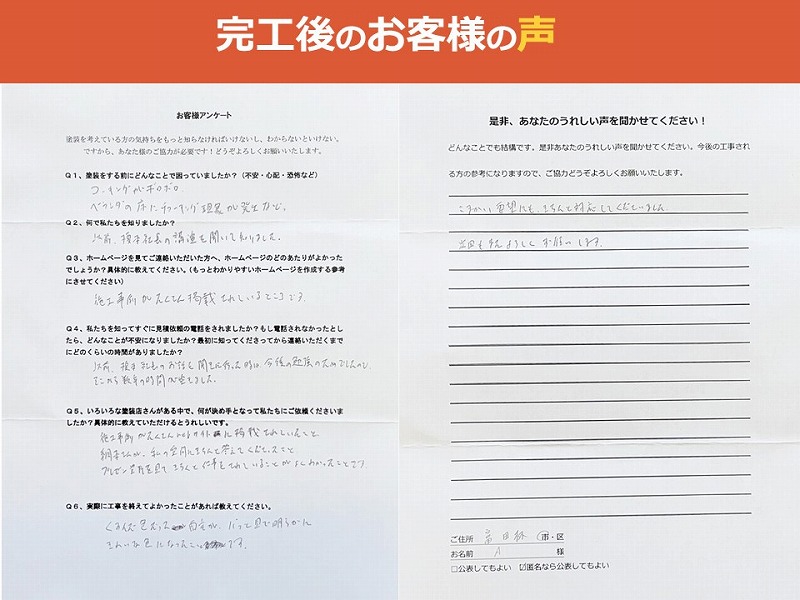 完工後のお客様の声
お客様アンケート
塗装を考えている方の気持ちをもっと知らなければいけないし、わからないといけない。
ですから、あなた様のご協力が必要です！どうぞよろしくお願いいたします。
Q1、塗装をする前にどんなことで困っていましたか？（不安・心配・恐怖など）
コーキングがボロボロ
ベランダの床にチョーキング現象が発生など。
Q2、何で私たちを知りましたか？
以前、 社長の講演を聞いて知りました。
Q3、ホームページを見てご連絡いただいた方へ、ホームページのどのあたりがよかった
でしょうか？具体的に教えてください。（もっとわかりやすいホームページを作成する参考
にさせてください）
施工事例がたくさん掲載されているところです。
Q4、私たちを知ってすぐに見積依頼の電話をされましたか？もし電話されなかったとし
たら、どんなことが不安になりましたか？最初に知ってくださってから連絡いただくまで
にどのくらいの時間がありましたか？
以前、 社長のお話を聞きに行った時は、今後の勉強のためでしたので、
そこから数年の時間が空きました。
Q5、いろいろな塗装店さんがある中で、何が決め手となって私たちにご依頼くださいま
したか？具体的に教えていただけるとうれしいです。
施工事例がたくさん サイトに掲載されていたこと
さんが、私の質問にきちんと答えてくださったこと
プレゼン資料を見て きちんと仕事をされていることがよくわかったことです
Q6、実際に工事を終えてよかったことがあれば教えてください。
くすんだ色だった 自宅が、パッと見て明るかに
きれいな色になったこと です。
是非、あなたのうれしい声を聞かせてください！
どんなことでも結構です。是非あなたのうれしい声を聞かせてください。今後の工事され
る方の参考になりますので、ご協力どうぞよろしくお願いいたします。
こまかい要望にも きちんと対応してくださいました
次回も宜しく お願いします。
ご住所 富田林 市・区
お名前 A 様
□公表してもよい ☑匿名なら公表してもよい